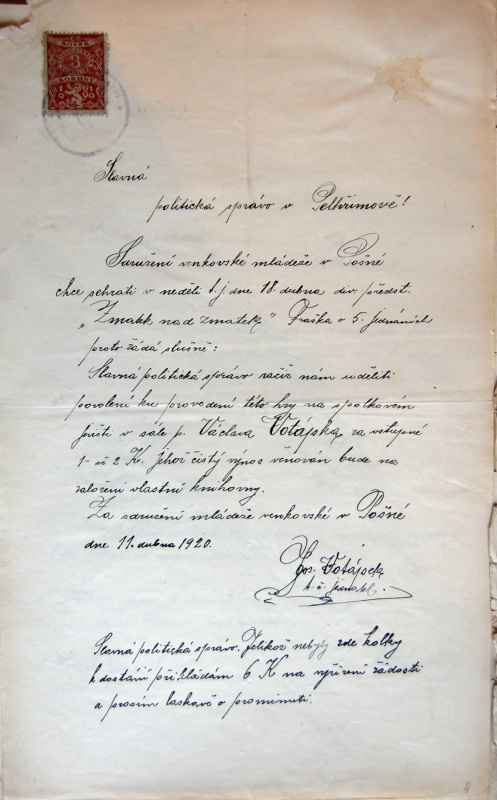 KOLEK
3
KORUNY
Slavná
politická správo v Pelhřimově!
Sdružení venkovské mládeže v Pošné
chce sehrati v neděli t. j dne 18. dubna div. předst.
„Zmatek nad zmatek" Fraška o 5. jednáních
proto žádá slušně:
Slavná politická správo račiž nám uděliti
povolení ku provedení této hry na spolkovém
v sále p. Václava Votápka za vstupné
1 - 2 K. Jehož čistý výnos věnován bude na
založení vlastní knihovny.
Za sdružení mládeže venkovské v Pošné
dne 11. dubna 1920.
Jos. Votápek
t. č. jednatel.
Slavná politická správo. Jelikož nebyly zde kolky
k dostání přikládám 6 K na vyřízení žádosti
a prosím laskavě o prominutí.